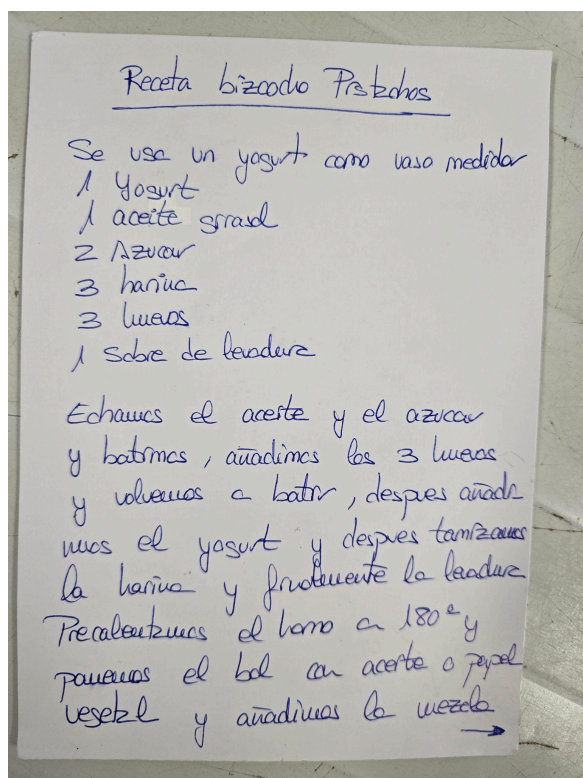 Receta bizcocho Pistachos
Se usa un yogurt como vaso medidor
1 Yogurt
1 aceite girasol
2 Azucar
3 harina
3 huevos
1 Sobre de levadura
Echamos el aceite y el azucar
y batimos, añadimos los 3 huevos
y volvemos a batir, despues añadi
mos el yogurt y despues tamizamos
la harina y finalmente la levadura
Precalentamos el horno a 180º y
ponemos el bol con aceite o papel
vegetal y añadimos la mezcla
→